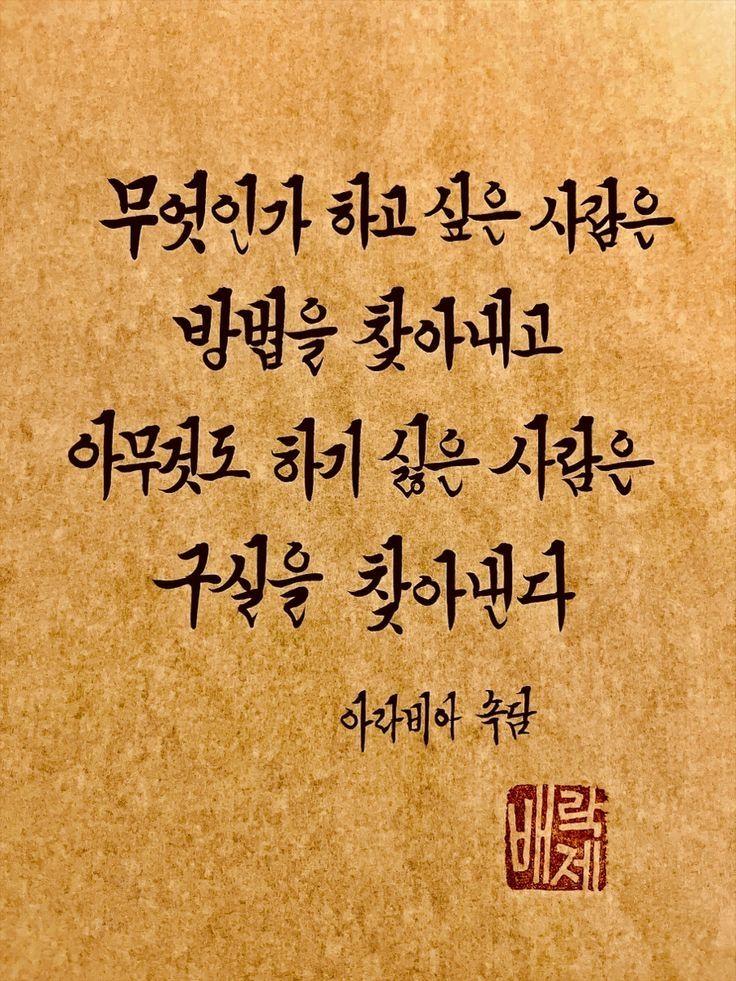 무엇인가 하고 싶은 사람은
방법을 찾아내고
아무것도 하기 싫은 사람은
구실을 찾아낸다
아라비아 속담
배락제